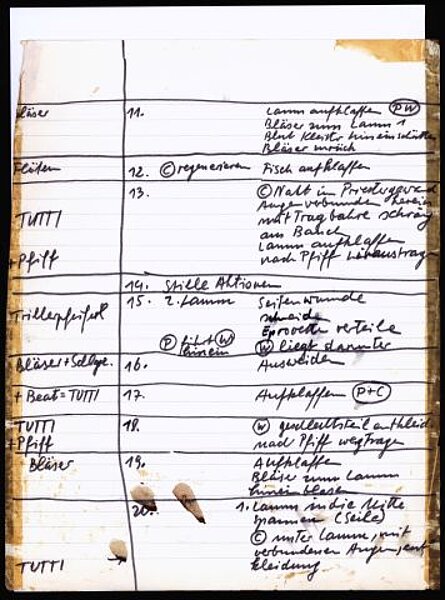 Bläser 11. Lamm aufklaffen (PW)
Bläser zum Lamm 1
Blut Kleister hineinschütten
Bläser zurück
Flöten 12. (C) regenerieren Fisch aufklaffen
13. (C) Nakt in Priestergewand
Augen verbunden herein
TUTTI mit Tragbahre schräg
am Bauch
Lamm aufklaffen
+ Pfiff nach Pfiff heraustragen
14. Stille Aktionen
15. 2. Lamm Seitenwunde
Trillerpfeiferl schneiden
Eprovetten verteile
(P) führt (W) (W) liegt darunter
hinein
Bläser + 16. Ausweiden
+ Beat = TUTTI 17. Aufklaffen (P+C)
TUTTI 18. (W)
+ Pfiff nach Pfiff wegtragen
Bläser 19. Aufklaffen
Bläser zum Lamm
hineinblasen
20. 1. Lamm in die Mitte
spannen (Seile)
(C) unter Lamm, mit
verbundenen Augen, ent
TUTTI kleidung